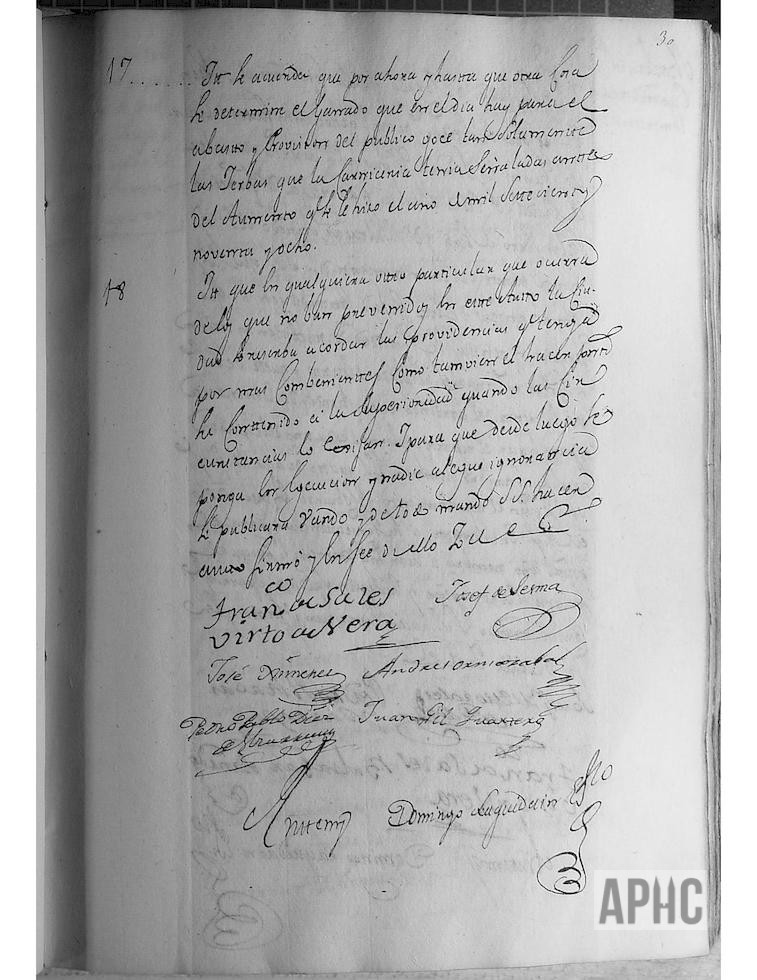 30
17 Itt se acuerda que por ahora y hasta que otra Cosa
se determine el Ganado que en el dia hay para el
abasto y Provision del publico goce tan Solamente
las Yerbas que la Carniceria tenia Señaladas antes
del Aumento q se le hizo el año de mil Setecientos
noventa y ocho.
18 Itt que en qualquiera otro particular que ocurra
de los que no van prevenidos en este Auto la Ciu-
dad reserba acordar las providencias q tenga
por mas Combenientes Como tamvien el hacer
Conttenido a la Superioridad quando las Cir
cunstancias lo exijan. Y para que desde luego se
ponga en egecucion y nadie alegue ignorancia
se publicara Vando y de todo mando S.S. hacer
auto firmó y en fee de ello Yo el
Franco de Sales
Virto de Vera
Josef de Sesma
José Ximenez
Andres Ormazabal
Pedro Pablo Diez
Juan Gil
Antemi
Domingo Laquidain
APHC